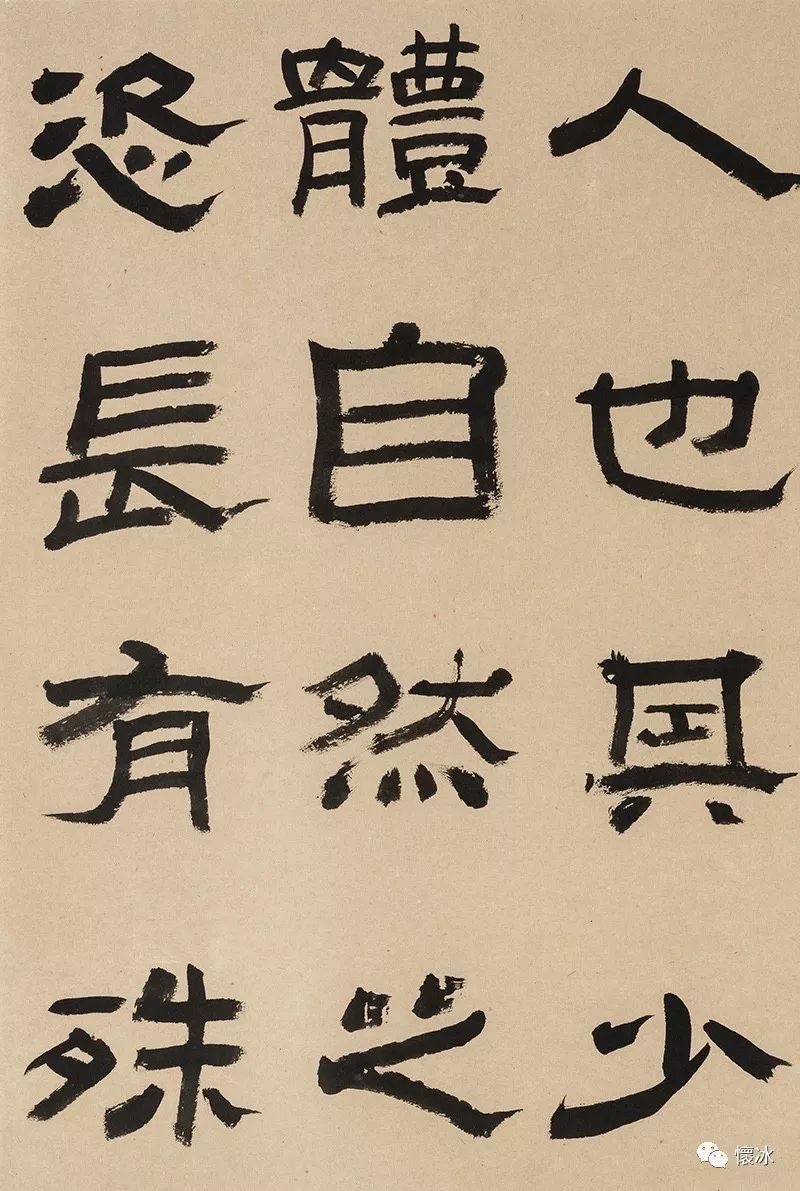 人也其少
體自然之
恣長有殊
懷冰